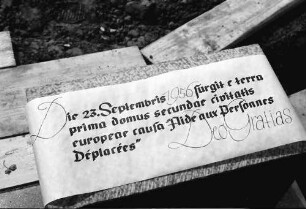 Die 23. Septembris 1956 surgit e terra
prima domus secundae civitatis
europeae causa "Aide aux Personnes
Déplacées"
Deo Gratias